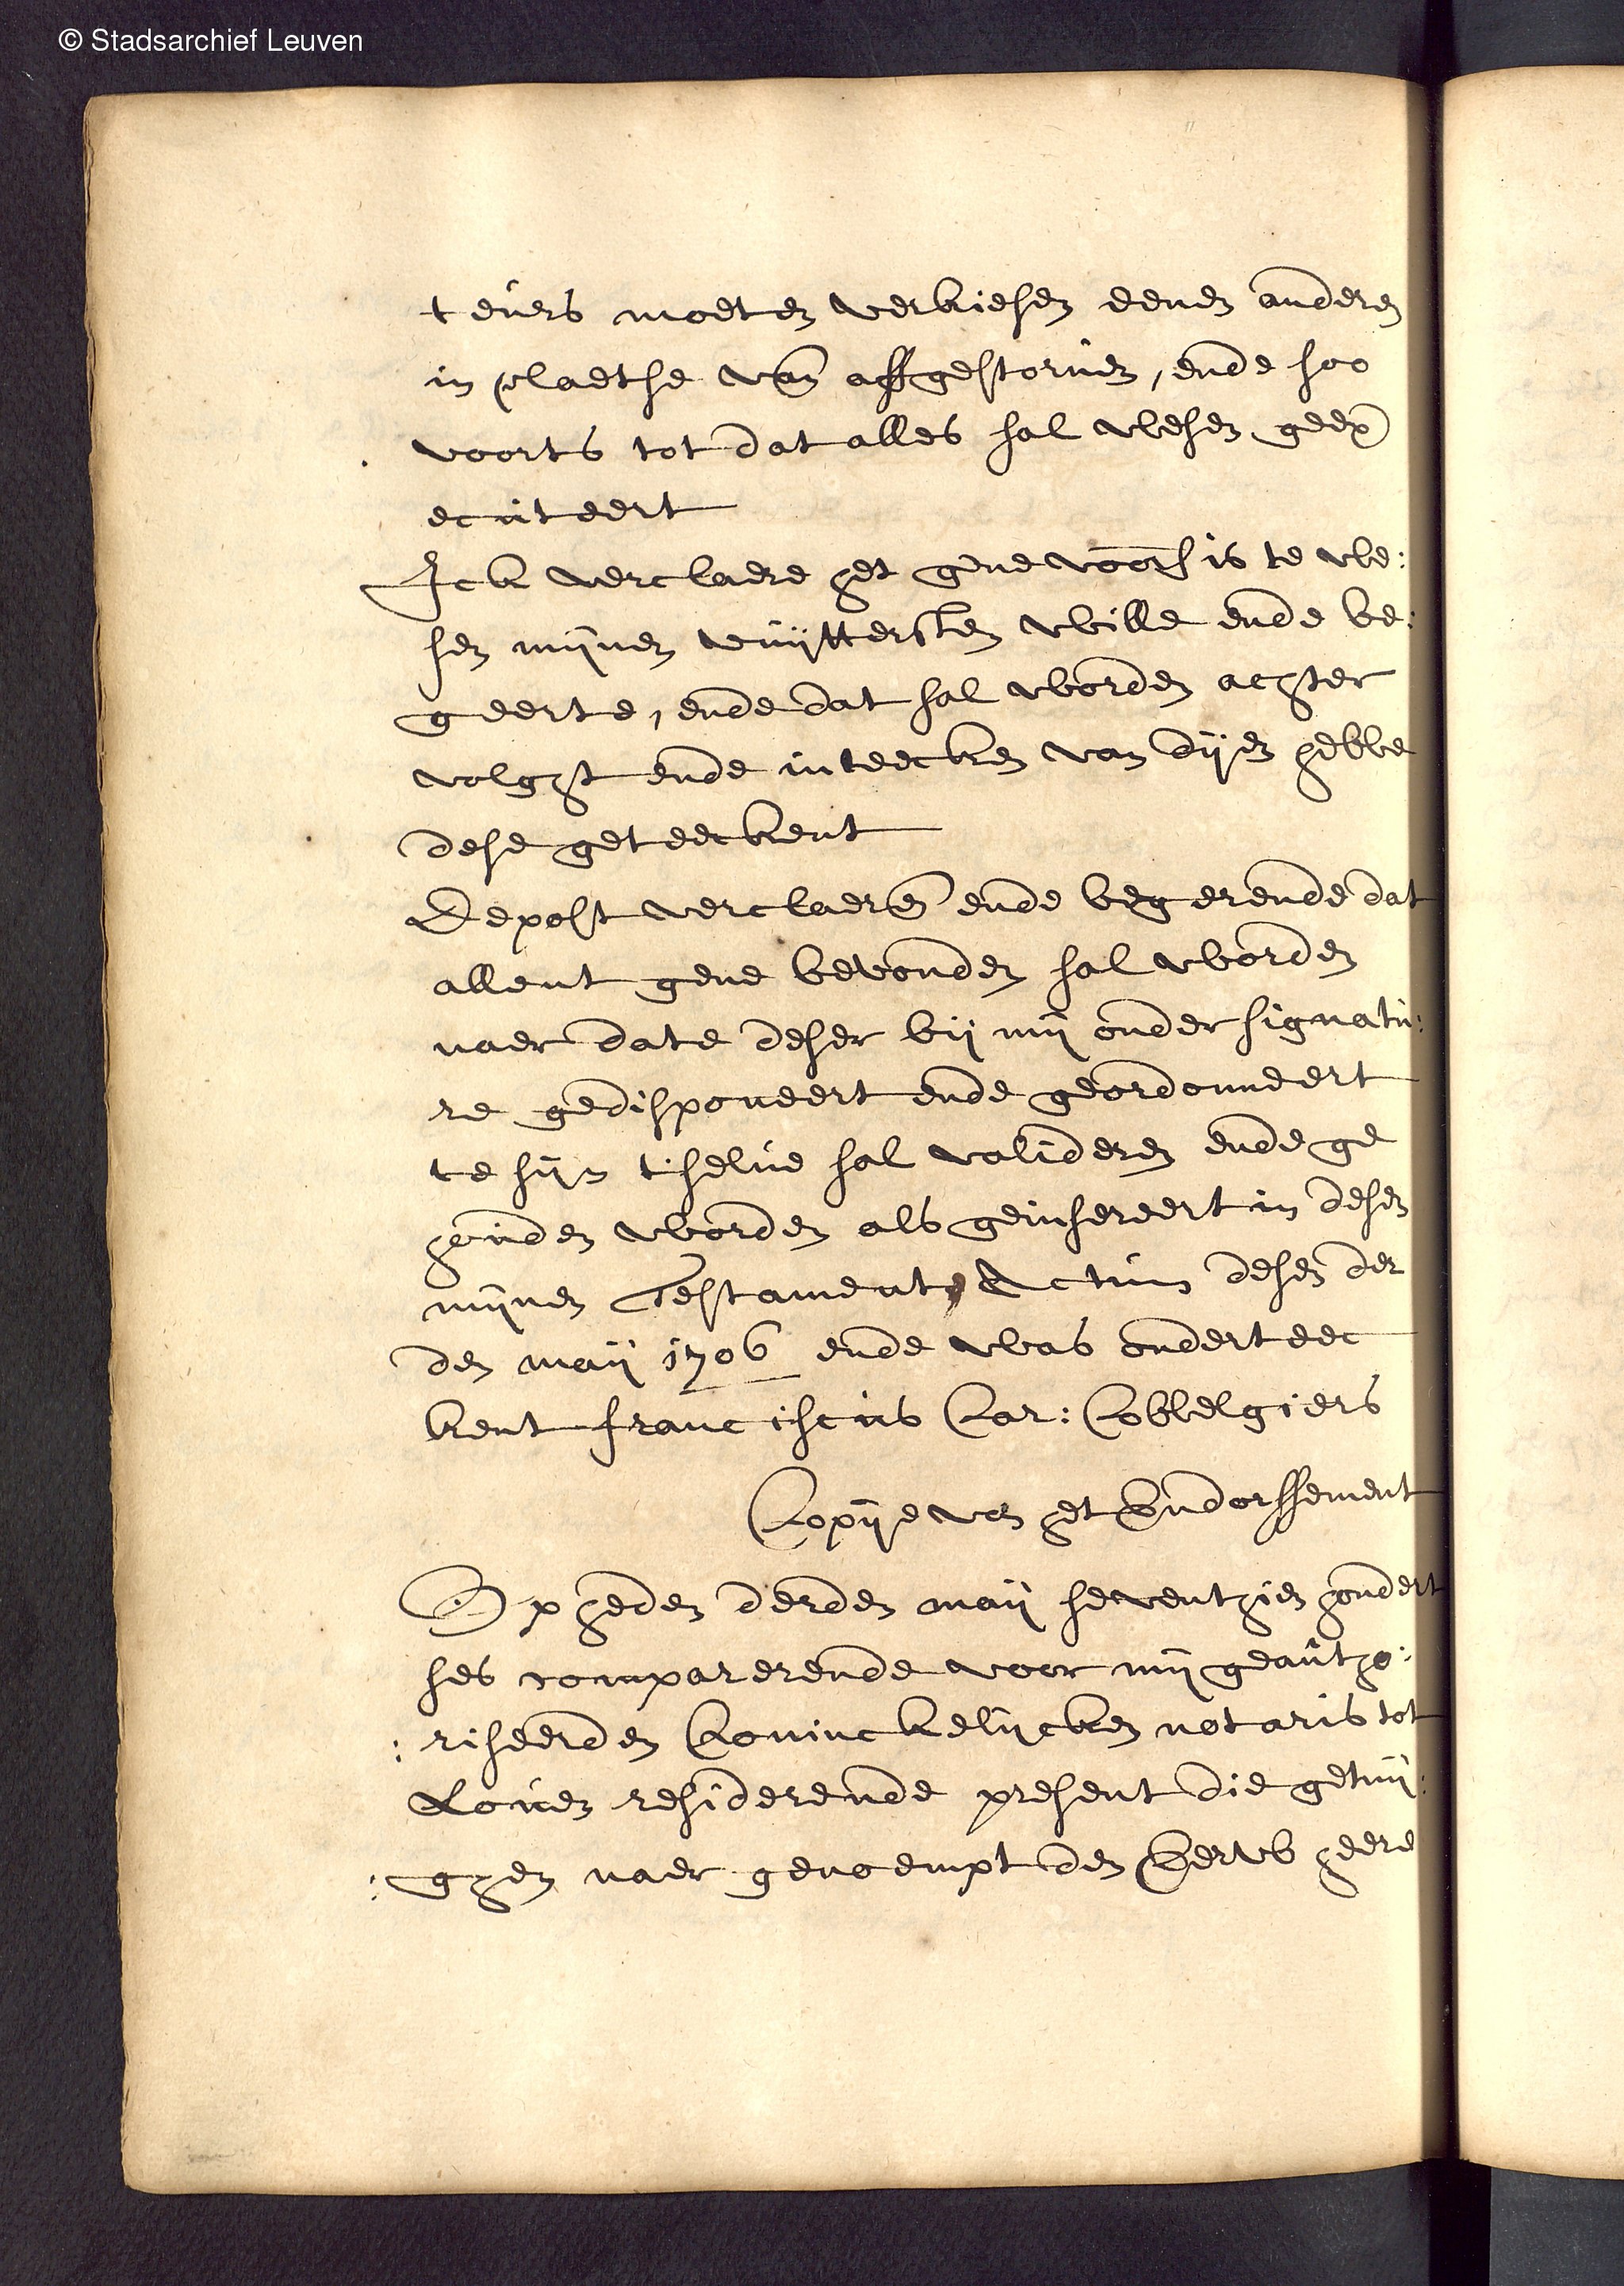 © Stadsarchief Leuven
teurs moeten verkiesen eenen anderen
in plaetse van affgestorven, ende soo
voorts tot dat alles sal wesen geex
ecuteert
Ick verclaere het gene voors is te we:
sen mijnen wuijttersten wille ende be:
geerte, ende dat sal worden achter
volght ende in teecken van dijen hebbe
dese geteeckent
Depost verclaeren ende begerende dat
allent gene bevonden sal worden
naer date deser bij mij onder signatu:
re gedisponeert ende geordonneert
te sijn t'selve sal valideren ende ge
houden worden als geinsereert in desen
mijnen Testamente Actum desen der
den maij 1706 ende was onderteec
kent franciscus Car: Cobbelgiers
Copije van het Endorssement
Op heden derden maij seventhien hondert
ses comparerende voor mij geautho:
: riseerden Coninckelijcken notaris tot
Loven residerende present die getuij:
: ghen naer genoempt den Eerw heere